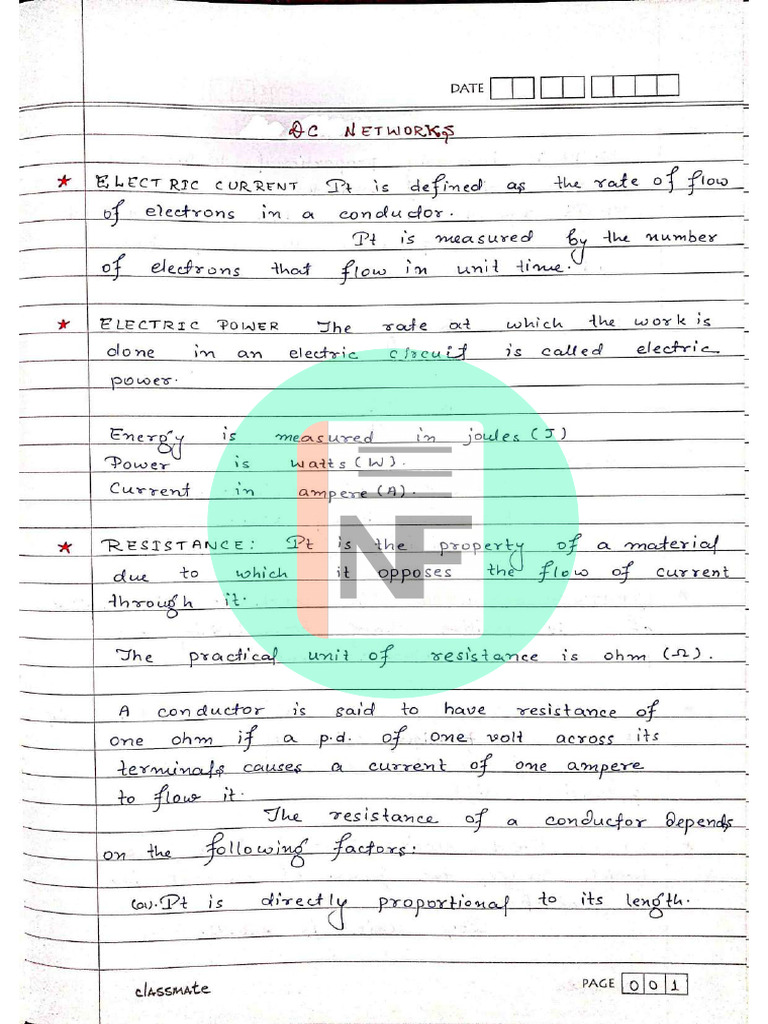 DATE
DC NETWORKS
★ ELECTRIC CURRENT It is defined as the rate of flow
of electrons in a conductor.
It is measured by the number
of electrons that flow in unit time.
★ ELECTRIC POWER The rate at which the work is
done in an electric circuit is called electric
power.
Energy is measured in joules (J)
Power is watts (W).
Current in ampere (A).
NF
★ RESISTANCE: It is the property of a material
due to which it opposes the flow of current
through it.
The practical unit of resistance is ohm (Ω).
A conductor is said to have resistance of
one ohm if a p.d. of one volt across its
terminals causes a current of one ampere
to flow it.
The resistance of a conductor Depends
on the following factors:
(a). It is directly proportional to its length.
classmate
PAGE 001